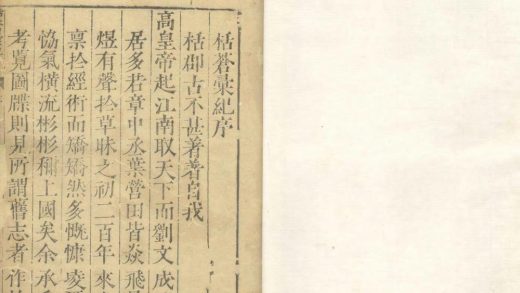 栝蒼彚紀序
栝郡古不甚著著自我
高皇帝起江南取天下而劉文成
居多若章中丞葉營田皆焱飛
煜有聲扵草昧之初二百年來
禀扵經術而矯矯然多慨慷凌
恊氣橫流彬彬稱上國矣余承
考覽圖牒則見所謂舊志者作